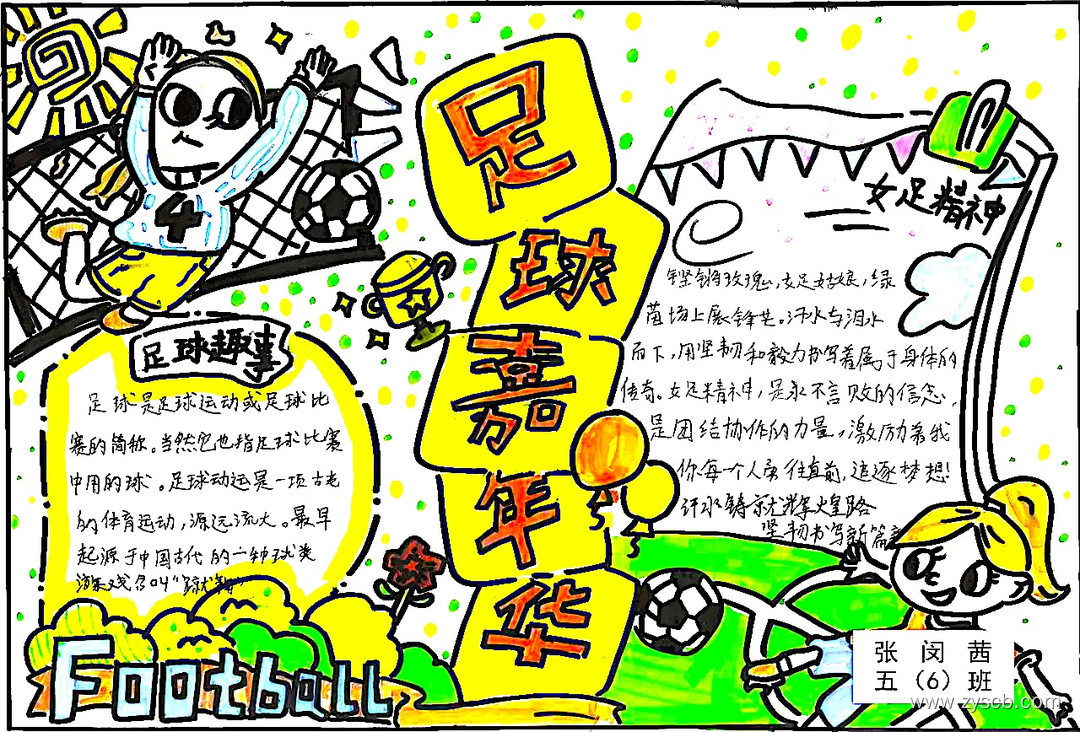 足球嘉年华
足球趣事
足球是足球运动或足球比
赛的简称。当然它也指足球比赛
中用的球。足球动运是一项古老
的体育运动，源远流大。最早
起源于中国古代的一种球类
游戏名叫“蹴鞠”
Football
女足精神
铿锵玫瑰，女足姑娘，绿
茵场上展锋芒。汗水与泪水
而下，用坚韧和毅力书写着属于身体的
传奇。女足精神，是永不言败的信念，
是团结协作的力量，激励着我
你每个人勇往直前，追逐梦想！
汗水铸就辉煌路
坚韧书写新篇章
4
张闵茜
五（6）班
www.zyseb.com